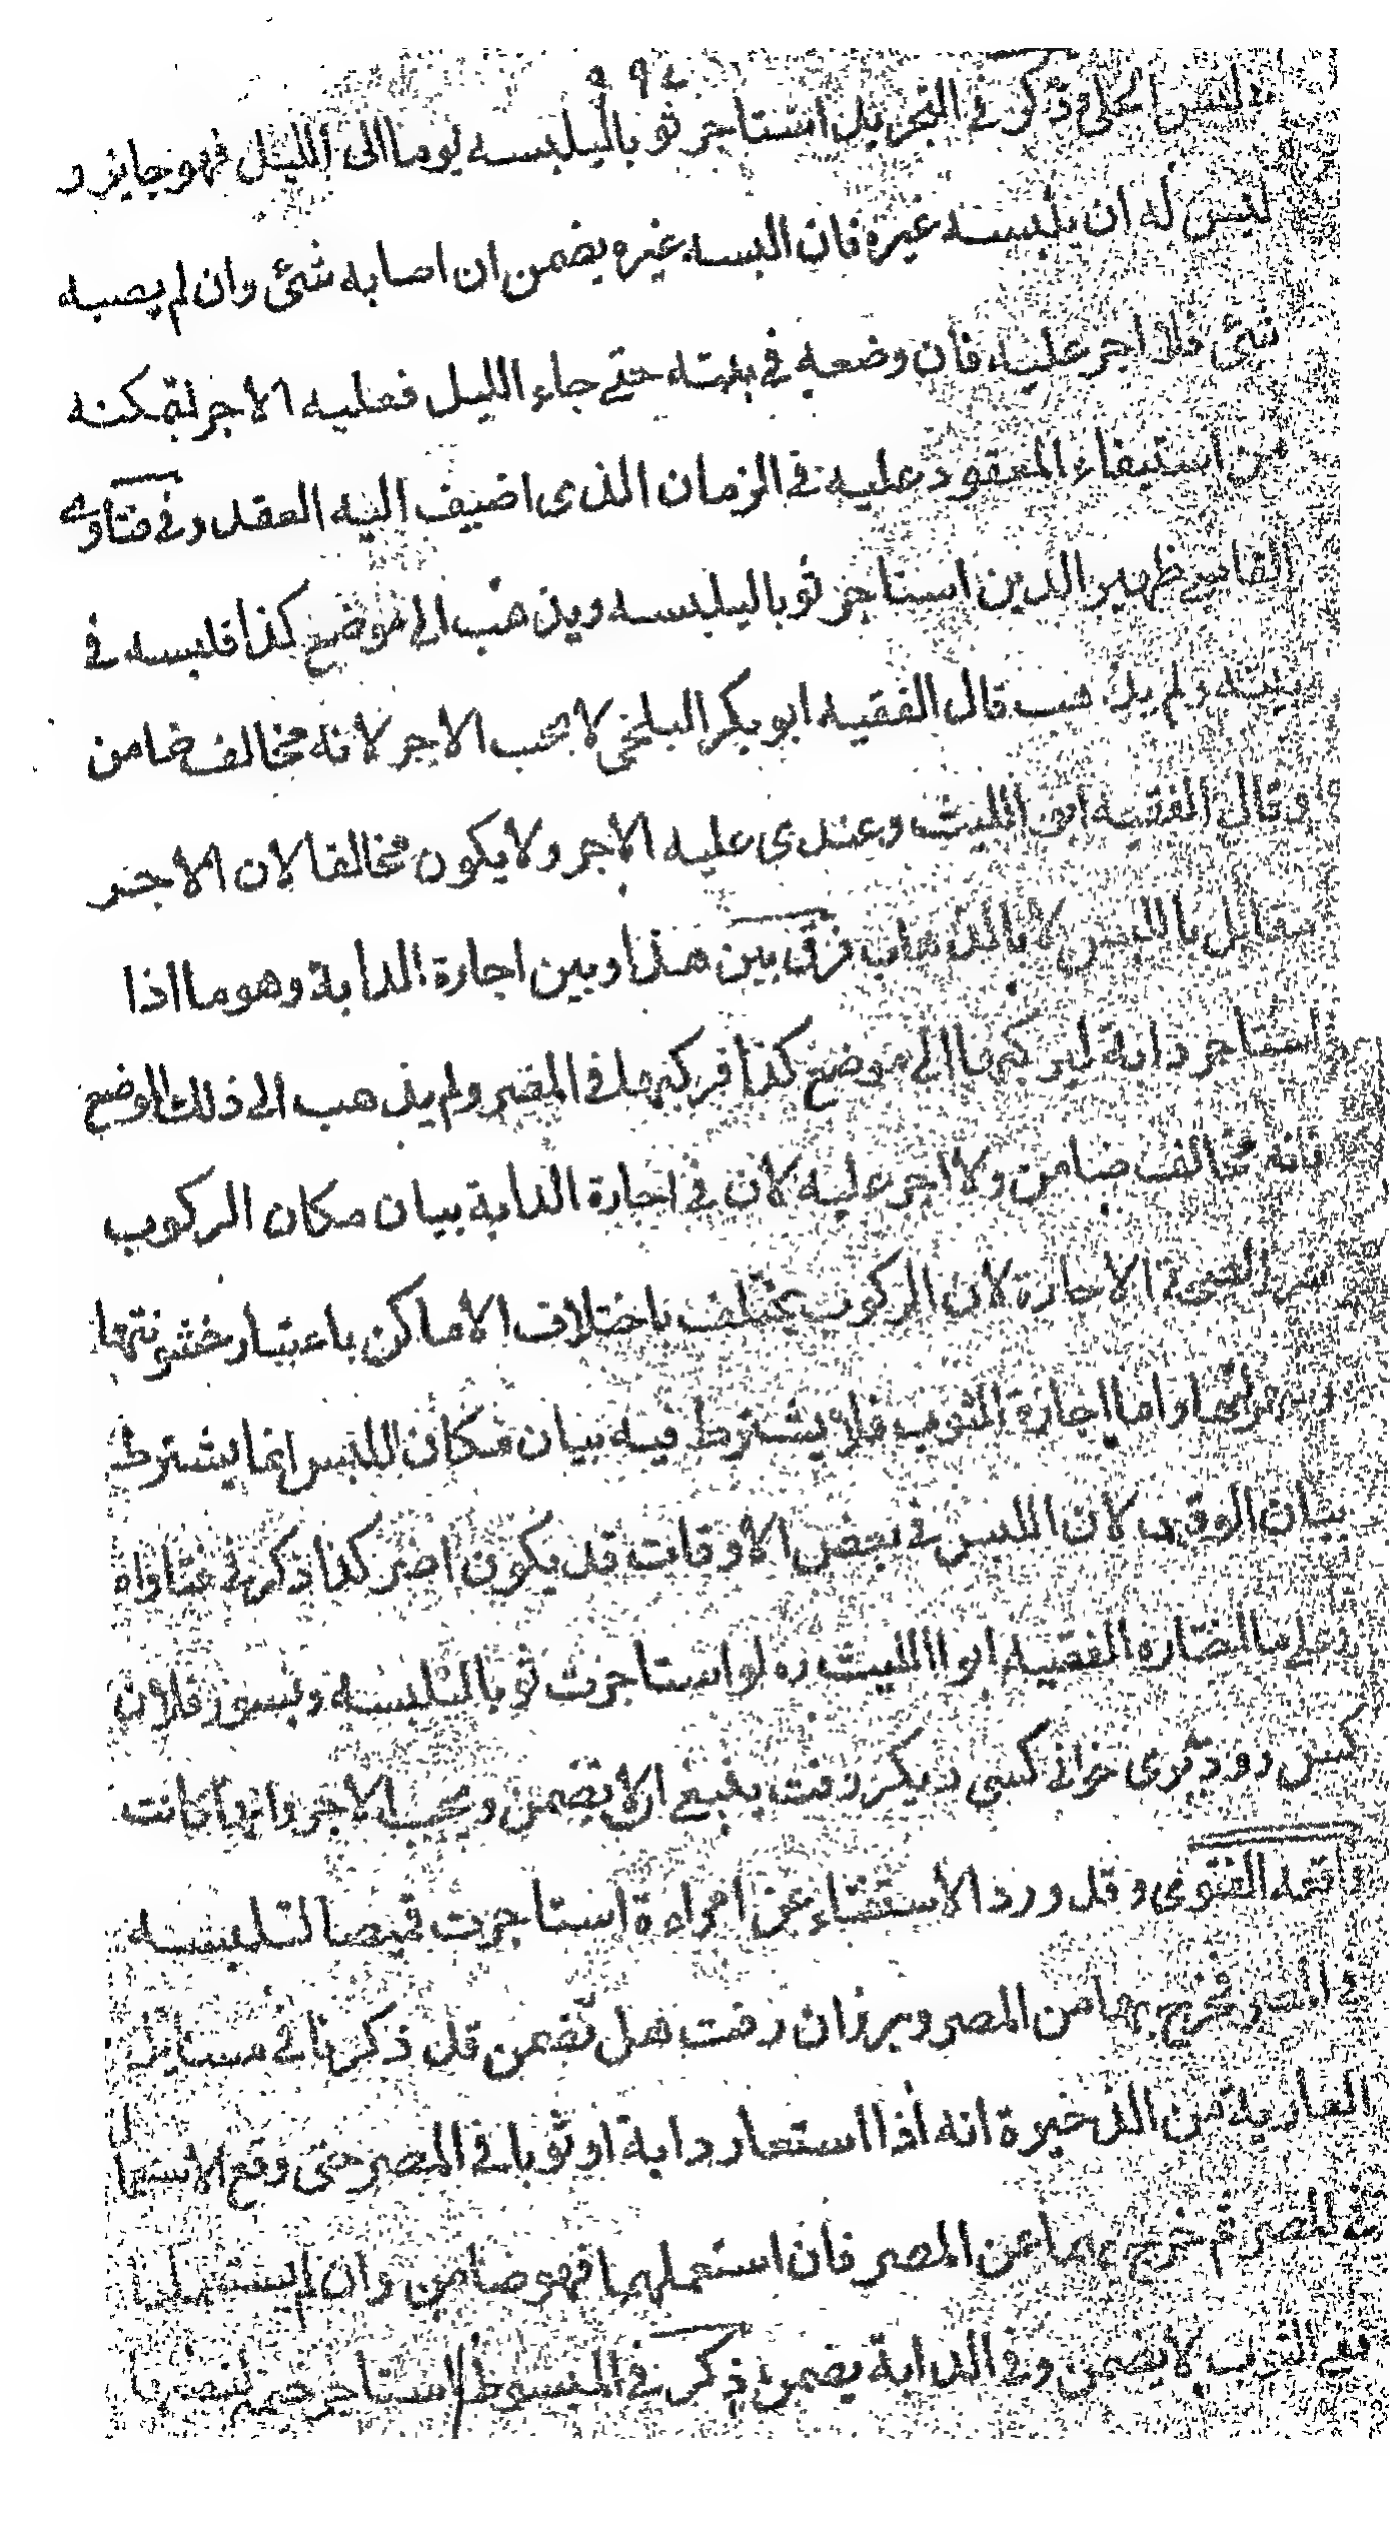 ذكر في التجريد استاجر ثوبا ليلبسه يوما الى الليل فهو جايز و
ليس له ان يلبسه غيره فان البسه غيره يضمن ان اصابه شئ وان لم يصبه
شئ فلا اجر عليه فان وضعه في بيته حتى جاء الليل فعليه الاجر لتمكنه
من استيفاء المعقود عليه في الزمان الذى اضيف اليه العقد وفى فتاوى
القاضى ظهير الدين استاجر ثوبا ليلبسه ويذهب الى موضع كذا فلبسه في
بيته ولم يذهب قال الفقيه ابو بكر البلخى لا يجب الاجر لانه مخالف ضامن
وقال الفقيه ابو الليث وعندى عليه الاجر ولا يكون مخالفا لان الاجر
مقابل باللبس لا بالذهاب فرق بين هذا وبين اجارة الدابة وهو ما اذا
استاجر دابة ليركبها الى موضع كذا فركبها في المصر ولم يذهب الى ذلك الموضع
فانه مخالف ضامن ولا اجر عليه لان في اجارة الدابة بيان مكان الركوب
الاجارة لان الركوب يختلف باختلاف الاماكن باعتبار خشونتها
واما اجارة الثوب فلا يشترط فيه بيان مكان اللبس انما يشترط
بيان الوقت لان اللبس في بعض الاوقات قد يكون اضر كذا ذكر في فتاواه
الفقيه ابو االليث ره لو استاجرت ثوبا لتلبسه وبسور فلان
كس رود كسى ديكر رفت ينبغى ان لا يضمن ويجب الاجر وانها كانت
واقعة الفتوى وقد ورد الاستفتاء عن امراءة استاجرت قميصا لتلبسه
في المصر فخرج بها من المصر وبر زان رفت هل تضمن قد ذكرنا في مسايل
العارية من الذخيرة انه اذا استعار دابة او ثوبا في المصر حتى وقع الاستعمال
في المصر ثم خرج بهما عن المصر فان استعملهما فهو ضامن وان لم يستعملهما
ففى الثوب لا يضمن وفى الدابة يضمن ذكر في المبسوط استاجر